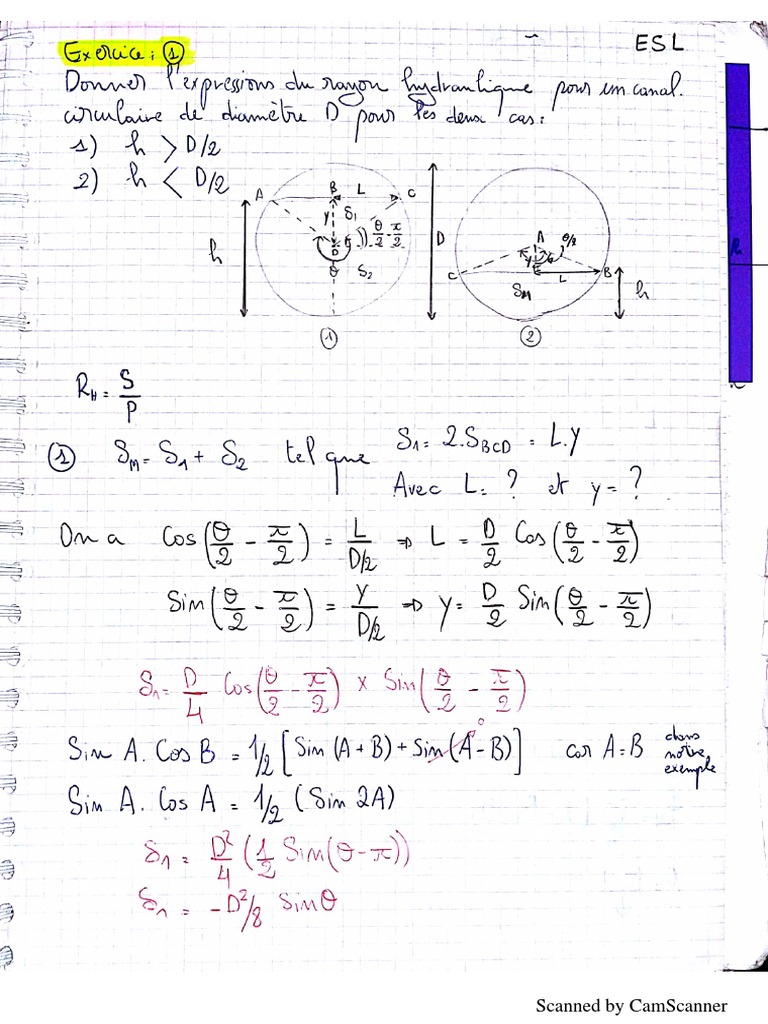 ESL
Exercice: ①
Donner l'expressions du rayon hydraulique pour un canal.
circulaire de diamètre D pour les deux cas:
1) h > D/2
2) h < D/2
A B L C
y S1 θ/2 - π/2
D
θ S2
h
①
D
A θ/2
y
C L B
SM
h
②
RH = S/P
① SM = S1 + S2 tel que S1 = 2.SBCD = L.y
Avec L = ? et y = ?
On a Cos(θ/2 - π/2) = L/D/2 ⇒ L = D/2 Cos(θ/2 - π/2)
Sin(θ/2 - π/2) = y/D/2 ⇒ y = D/2 Sin(θ/2 - π/2)
S1 = D/4 Cos(θ/2 - π/2) × Sin(θ/2 - π/2)
Sin A. Cos B = 1/2 [Sin (A + B) + Sin (A - B)] 0 car A = B dans notre exemple
Sin A. Cos A = 1/2 (Sin 2A)
S1 = D²/4 (1/2 Sin(θ - π))
S1 = -D²/8 Sinθ
Scanned by CamScanner